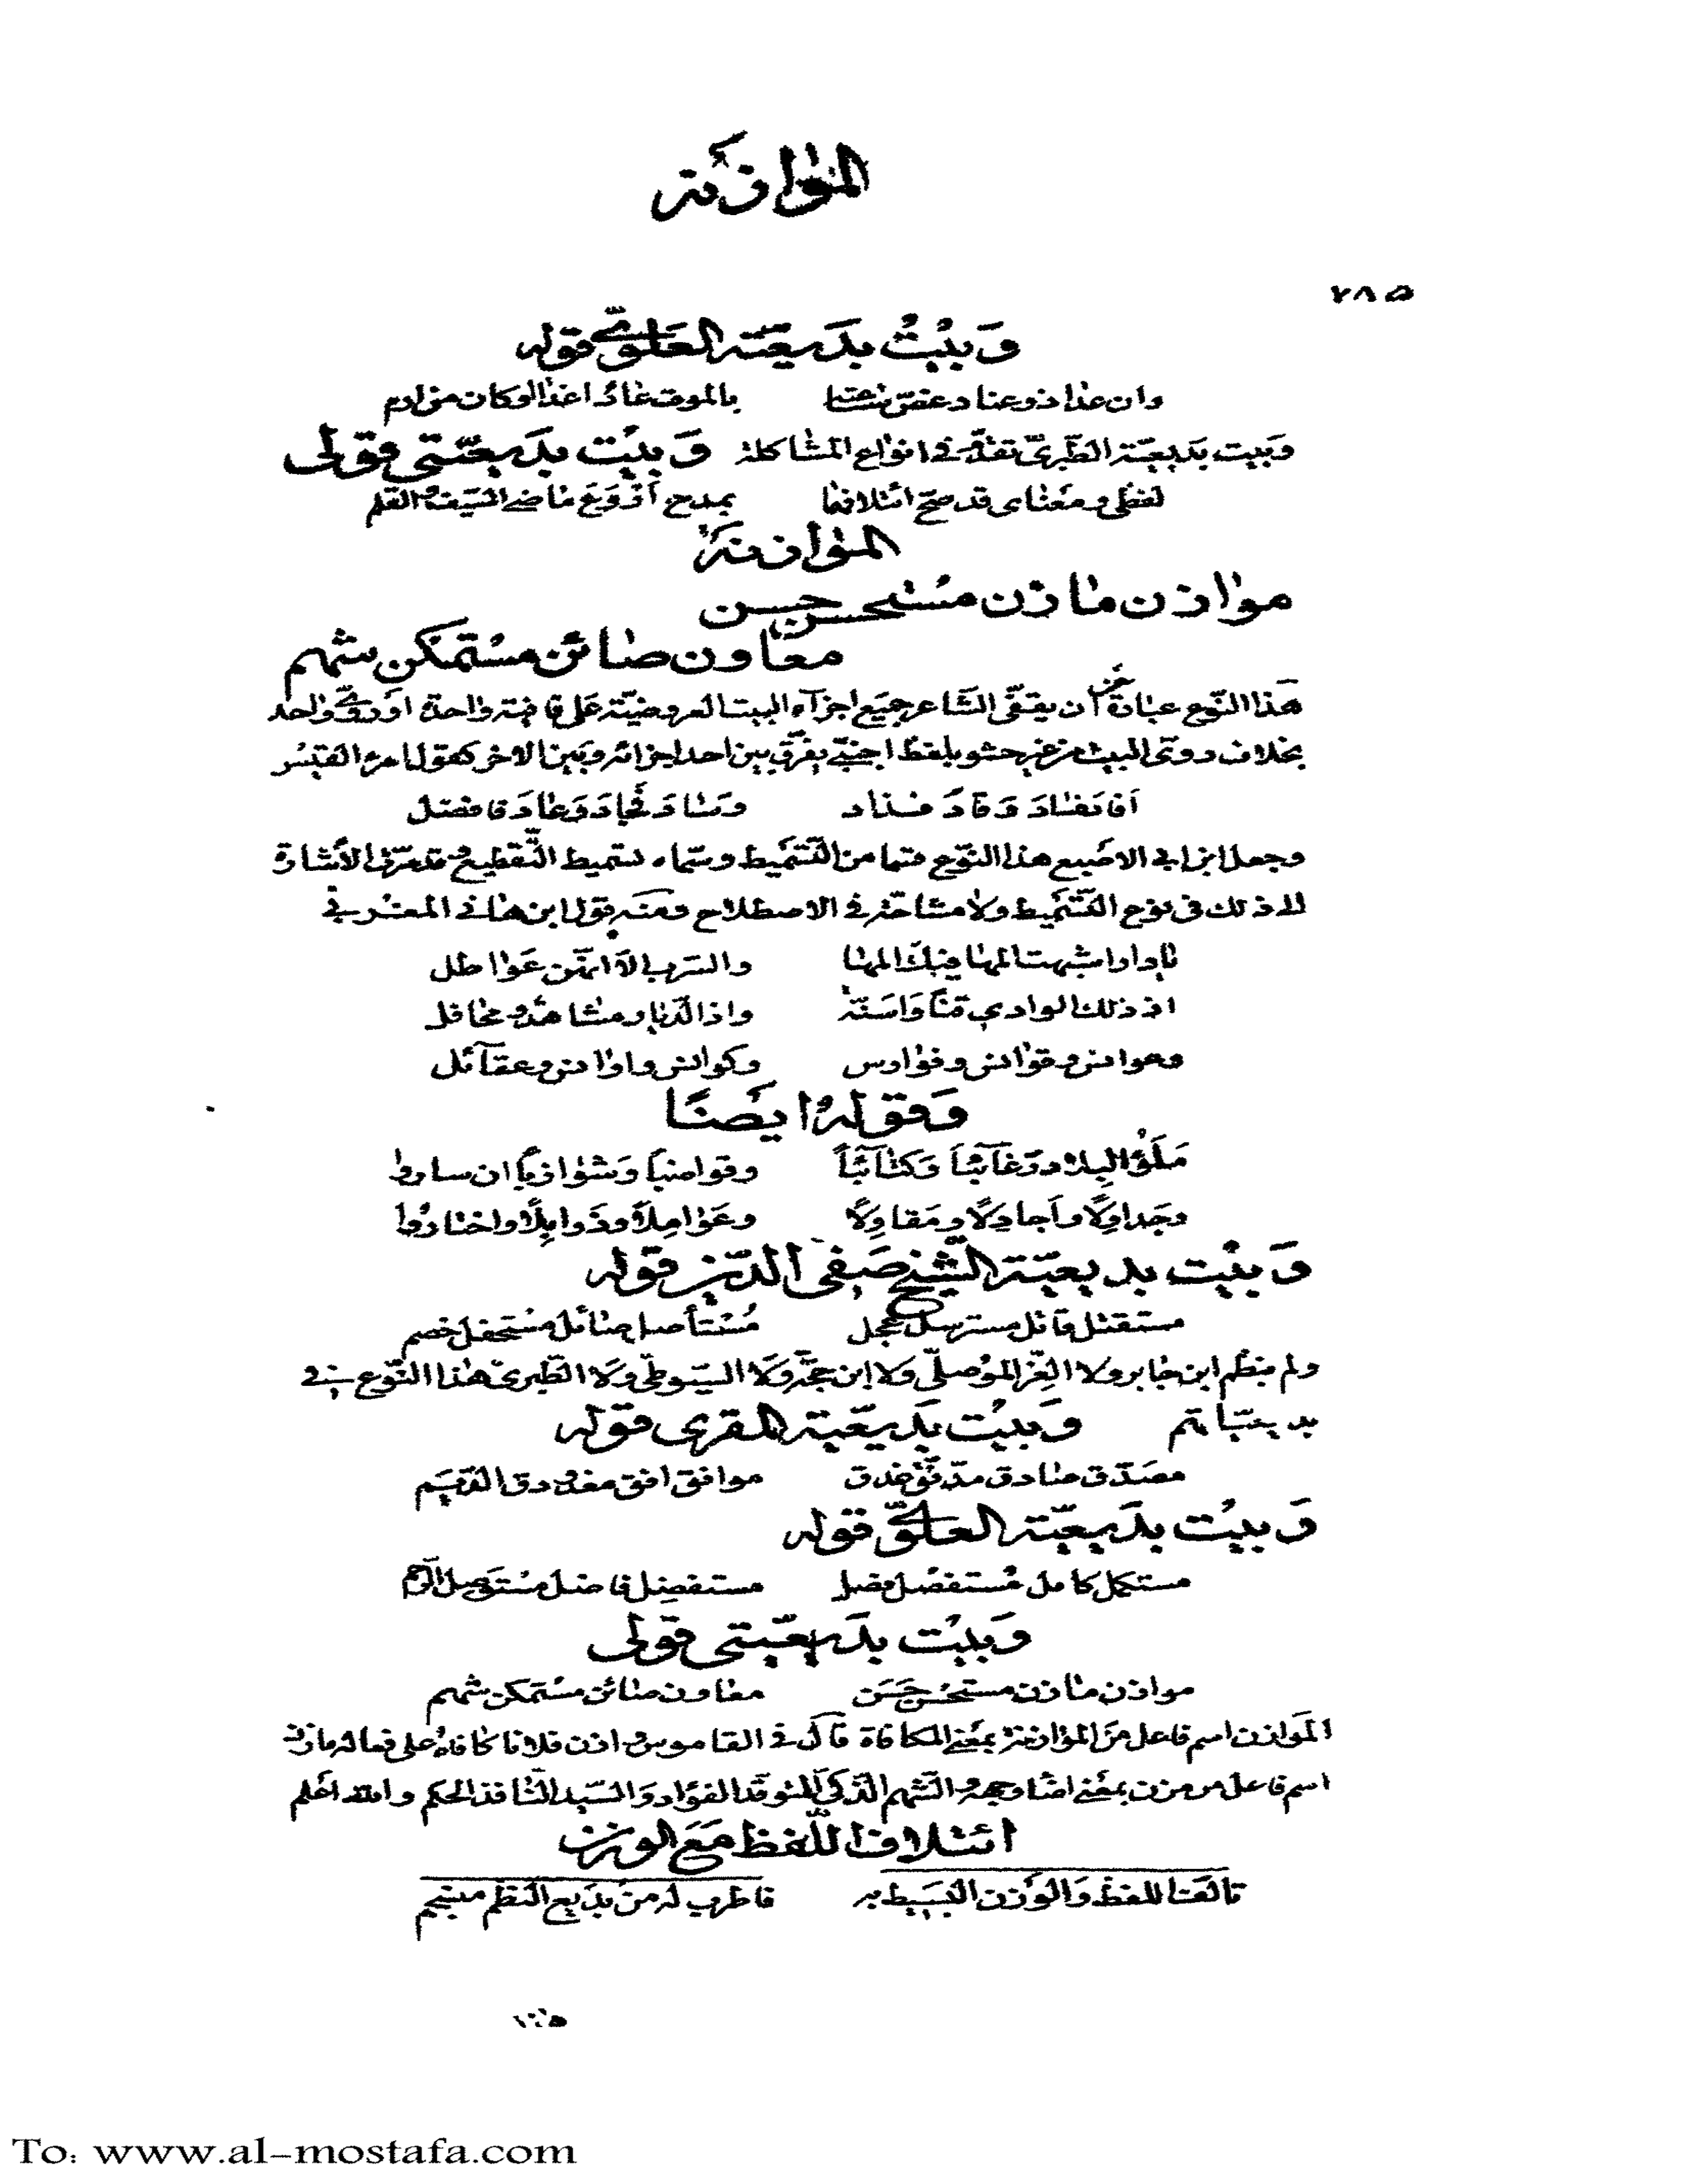 الموازنة
٧٨٥
وَبَيْتُ بديعيّة العَلَويّ قوله
وان عدا ذو عناد غصّ بالموت عاد
وَبَيت بديعيّة الطّبريّ تقدّم في انواع المشاكلة وَبَيْت بدَيعيّتي قولى
لفظى ومَعْناى قد صحّ ائتلافهما بمدح اَرْوَعَ ماضى السّيف والقلم
الموازنة
موازن مازن مستحسن حسن
معاون صائن مستمكن شهم
هَذا النّوع عبارة عن أن يقفّى الشّاعر جميع اجزآء البيت العروضيّة عَلى قافية واحدة اَو روىّ واحد
بخلاف روىّ البيت من غير حشو بلفظ اجنبىّ يفرّق بين احد اجزائه وبَين الاخر كقول امرء القيس
اَفادَ فسادَ وَقادَ فذاد وَسَادَ فجادَ وَعادَ فافضل
وجعل ابن ابى الاصبع هذا النّوع قسما من التّسْميط وسمّاه تسميط التّقطيع وقد مرّت الأشارة
الى ذلك فى نوع التّسْميط ولا مشاحّة فى الاصطلاح ومنه قول ابن هانى المغربىّ
يا دار اشبهت المها فيك المها والسّرب الاّ انّهن عَواطل
اذ ذلك الوادى قَناً وَاَسنّة واذا الدّيار مشاهد ومحافل
وعوابس وقوانس وفوارس وكوانس واوانس وعقآئل
وَقوله ايضًا
مَلَؤُا البلاد رَغآئباً وكتآئباً وقواضباً وَشوازباً ان ساروا
وجَداوِلاً واَجادِلاً ومَقاوِلاً وعَوامِلاً وذَوابِلاً واختاروا
وَبَيْت بديعيّة الشّيخ صَفىّ الدّين قوله
مستقتل قاتل مسترسل عجل مُسْتأصل صائل مستفحل خصم
ولم ينظم ابن جابر ولا العِزّ المَوْصلىّ وَلا ابن حجّة وَلا السّيوطىّ وَلا الطّبرىّ هذا النّوع فى
بديعيّاتهم وَبَيْت بَديعيّة المقرى قوله
مصَدّق صادق موافق افق
وَبَيْت بدَيعيّة العلوىّ قوله
مستكمل كامل مُستفضل فضل مستفصل فاضل
وَبَيْت بدَيعيّتى قولى
موازن مازن مستحسن حَسَن معاون صائن مستمكن شهم
المَوازن اسم فاعل من الموازنة بمَعْنى المكافاة قال فى القاموس وازن فلانا كافاه على فعاله ومازن
اسم فاعل من مزن بمعْنى اضاء وجهه والشّهم الذّكىّ المتوقّد الفؤاد وَالسّيد النّافذ الحكم والله اعْلم
ائتلاف اللّفظ مَعَ الوزن
تالف اللفظ وَالوَزن البَسيط به فاطرب له من بَديع النّظم منسجم
To: www.al-mostafa.com